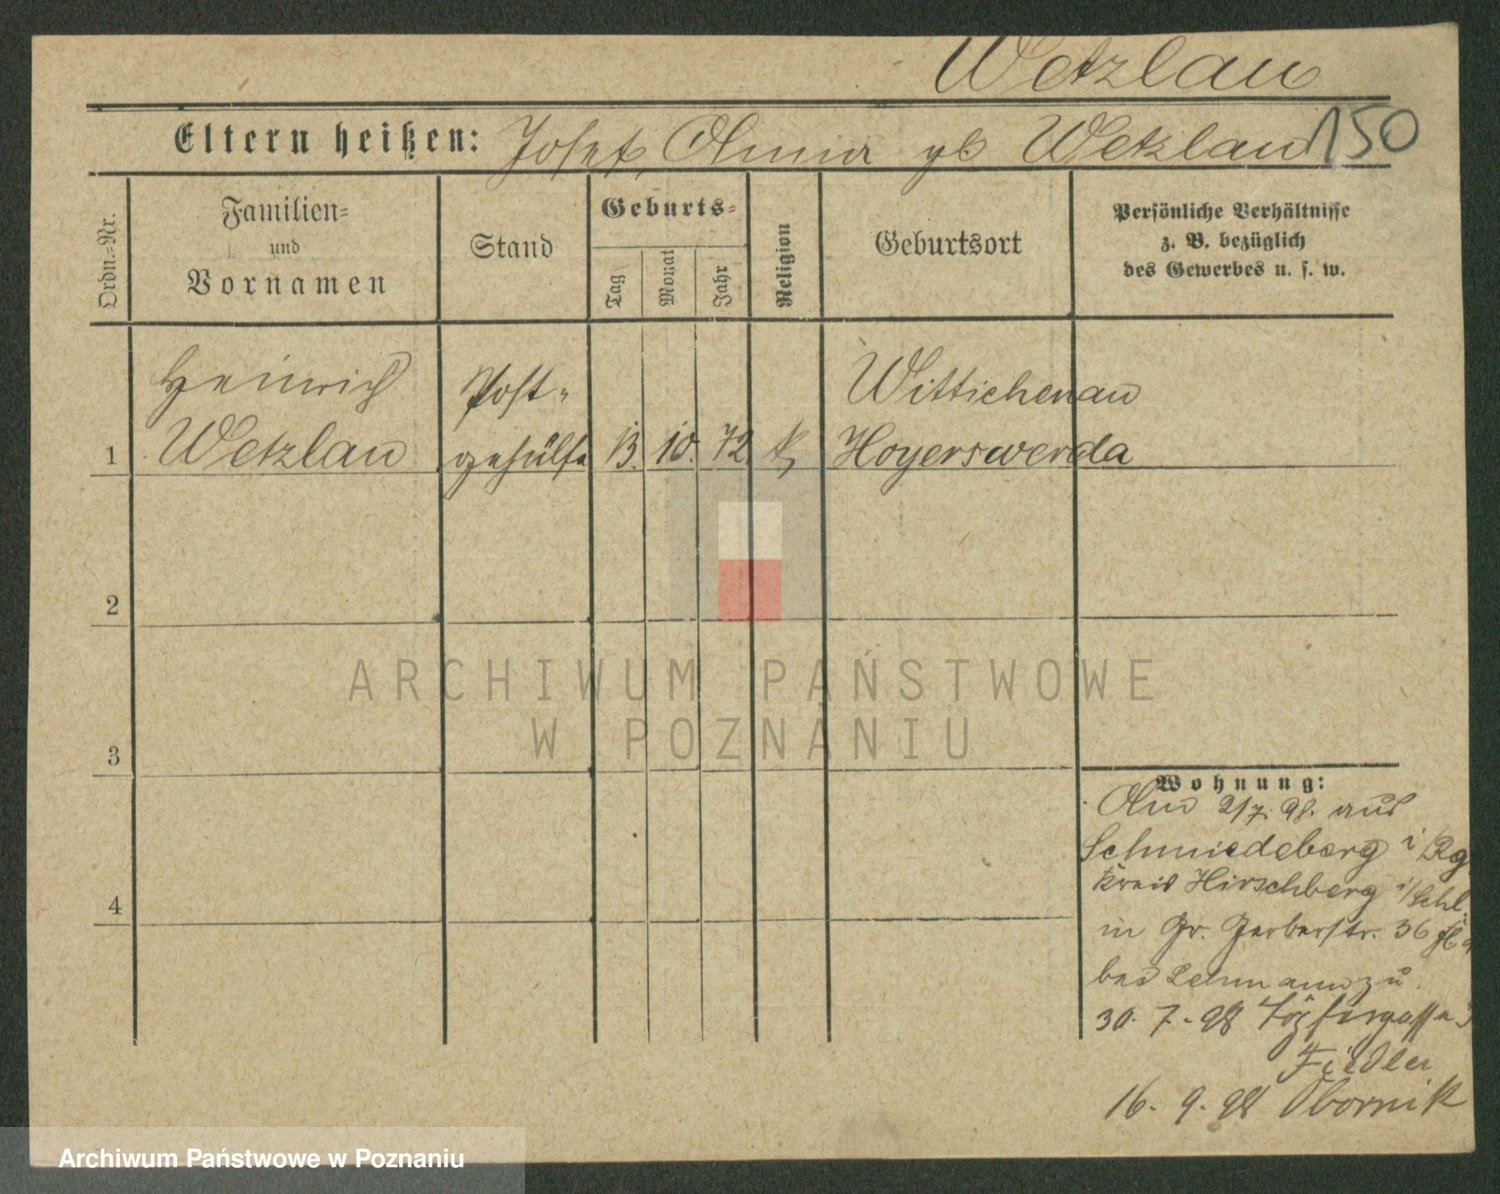 Wetzlau
150
Eltern heißen: Josef, Anna gb Wetzlau
Ordn.=Nr.
Familien=
und
Vornamen
Stand
Geburts=
Tag
Monat
Jahr
Religion
Geburtsort
Persönliche Verhältnisse
z. B. bezüglich
des Gewerbes u. s. w.
1
Heinrich
Wetzlau
Post-
gehülfe
13. 10. 72 k
Wittichenau
Hoyerswerda
2
3
4
Wohnung:
Am 2/7. 98. aus
Schmiedeberg i Rg
Kreis Hirschberg i/Schl.
in Gr. Gerberstr. 36
bei Lehmann zu
30. 7. 98 Töpfergasse 3
Fiedler
16. 9. 98 Obornik
ARCHIWUM PAŃSTWOWE
W POZNANIU
Archiwum Państwowe w Poznaniu